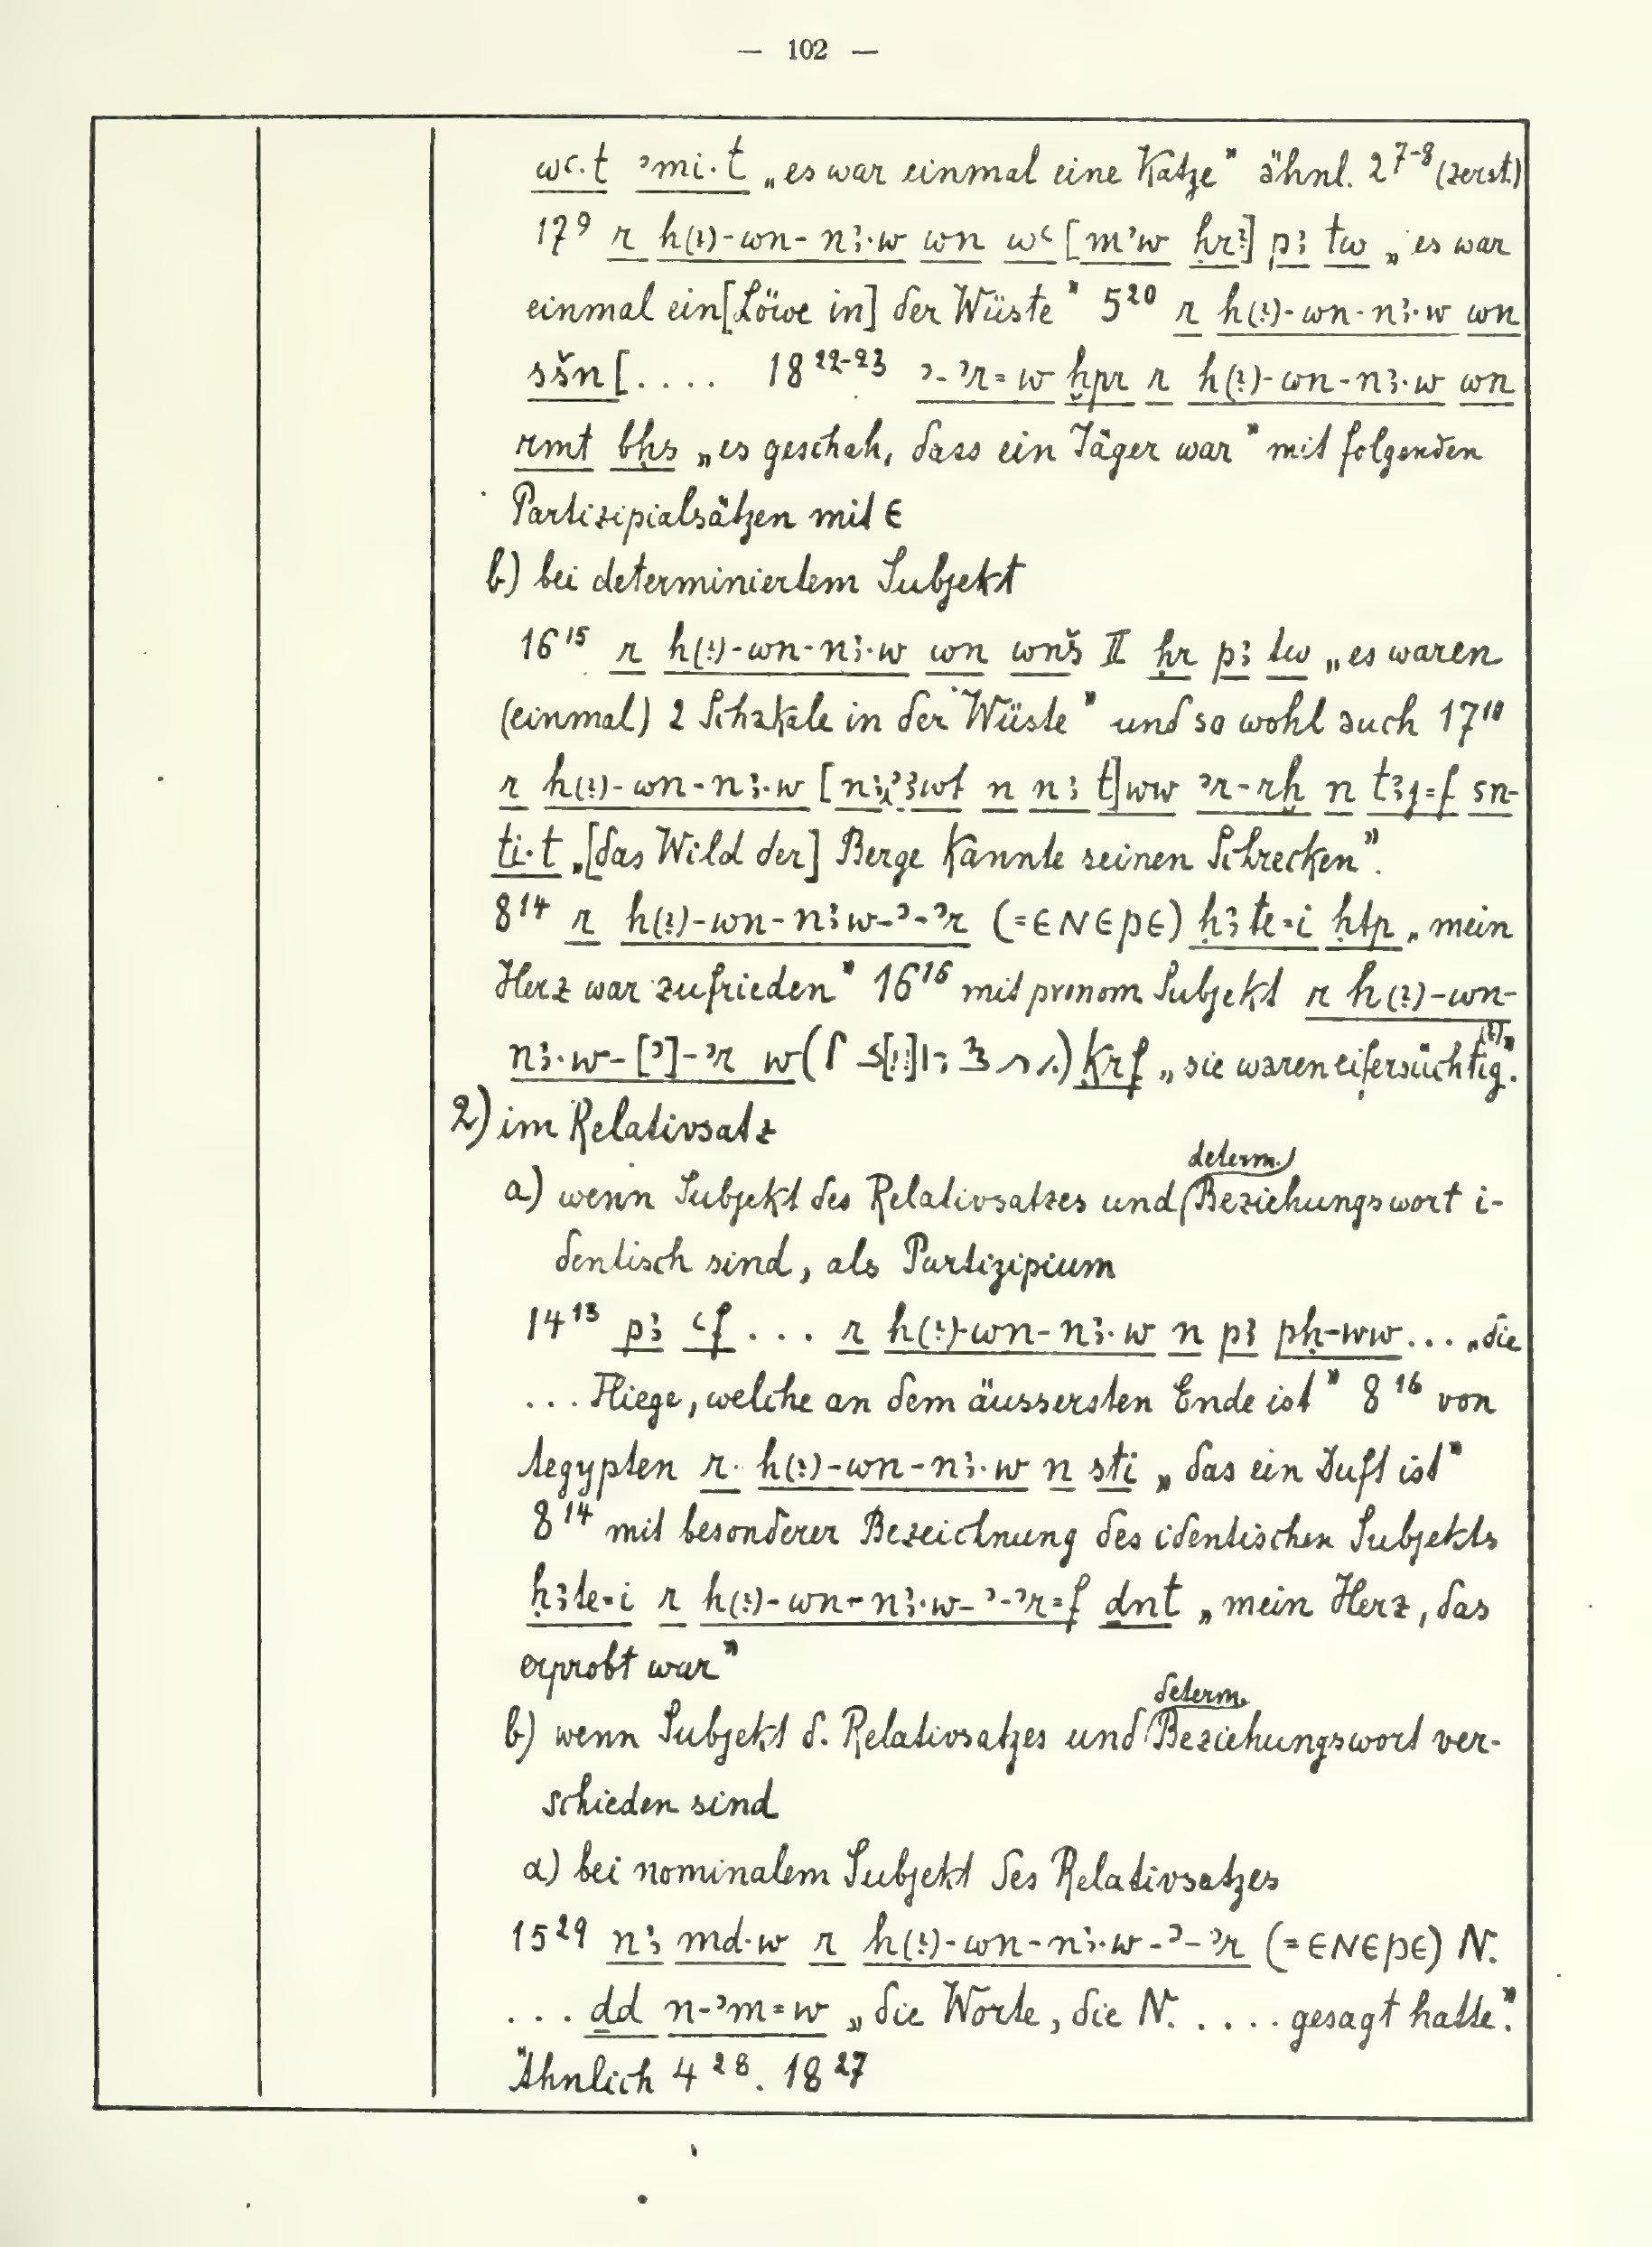 — 102 —
wꜥ.t ꜣmi.t „es war einmal eine Katze" ähnl. 2⁷⁻⁸ (zerst.)
17⁹ r h(?)-wn-nꜣ.w wn wꜥ [mꜣw ḥr?] pꜣ tw „es war
einmal ein [Löwe in] der Wüste" 5²⁰ r h(?)-wn-nꜣ.w wn
sšn [.... 18²²⁻²³ ʾ-ʾr=w ḫpr r h(?)-wn-nꜣ.w wn
rmt bḥs „es geschah, dass ein Jäger war" mit folgenden
Partizipialsätzen mit ⲉ
b) bei determiniertem Subjekt
16¹⁵ r h(?)-wn-nꜣ.w wn wnš II ḥr pꜣ tw „es waren
(einmal) 2 Schakale in der Wüste" und so wohl auch 17¹⁰
r h(?)-wn-nꜣ.w [nꜣ ꜣwt n nꜣ t]ww ʾr-rḫ n tꜣj=f sn-
ti.t „[das Wild der] Berge kannte seinen Schrecken".
8¹⁴ r h(?)-wn-nꜣw-ʾ-ʾr (=ⲉⲛⲉⲣⲉ) ḥꜣte=i ḥtp „mein
Herz war zufrieden" 16¹⁶ mit pronom Subjekt r h(?)-wn-
nꜣ.w-[ʾ]-ʾr w krf „sie waren eifersüchtig(?)".
2) im Relativsatz
a) wenn Subjekt des Relativsatzes und (determ.) Beziehungswort i-
dentisch sind, als Partizipium
14¹³ pꜣ ꜥf ... r h(?)-wn-nꜣ.w n pꜣ pḥ-ww ... „die
... Fliege, welche an dem äussersten Ende ist" 8¹⁶ von
Aegypten r h(?)-wn-nꜣ.w n sti „das ein Duft ist"
8¹⁴ mit besonderer Bezeichnung des identischen Subjekts
ḥꜣte=i r h(?)-wn-nꜣ.w-ʾ-ʾr=f dnt „mein Herz, das
erprobt war"
b) wenn Subjekt d. Relativsatzes und determ. Beziehungswort ver-
schieden sind
α) bei nominalem Subjekt des Relativsatzes
15²⁹ nꜣ md.w r h(?)-wn-nꜣ.w-ʾ-ʾr (=ⲉⲛⲉⲣⲉ) N.
... ḏd n-ʾm=w „die Worte, die N. .... gesagt hatte".
Ähnlich 4²⁸. 18²⁷